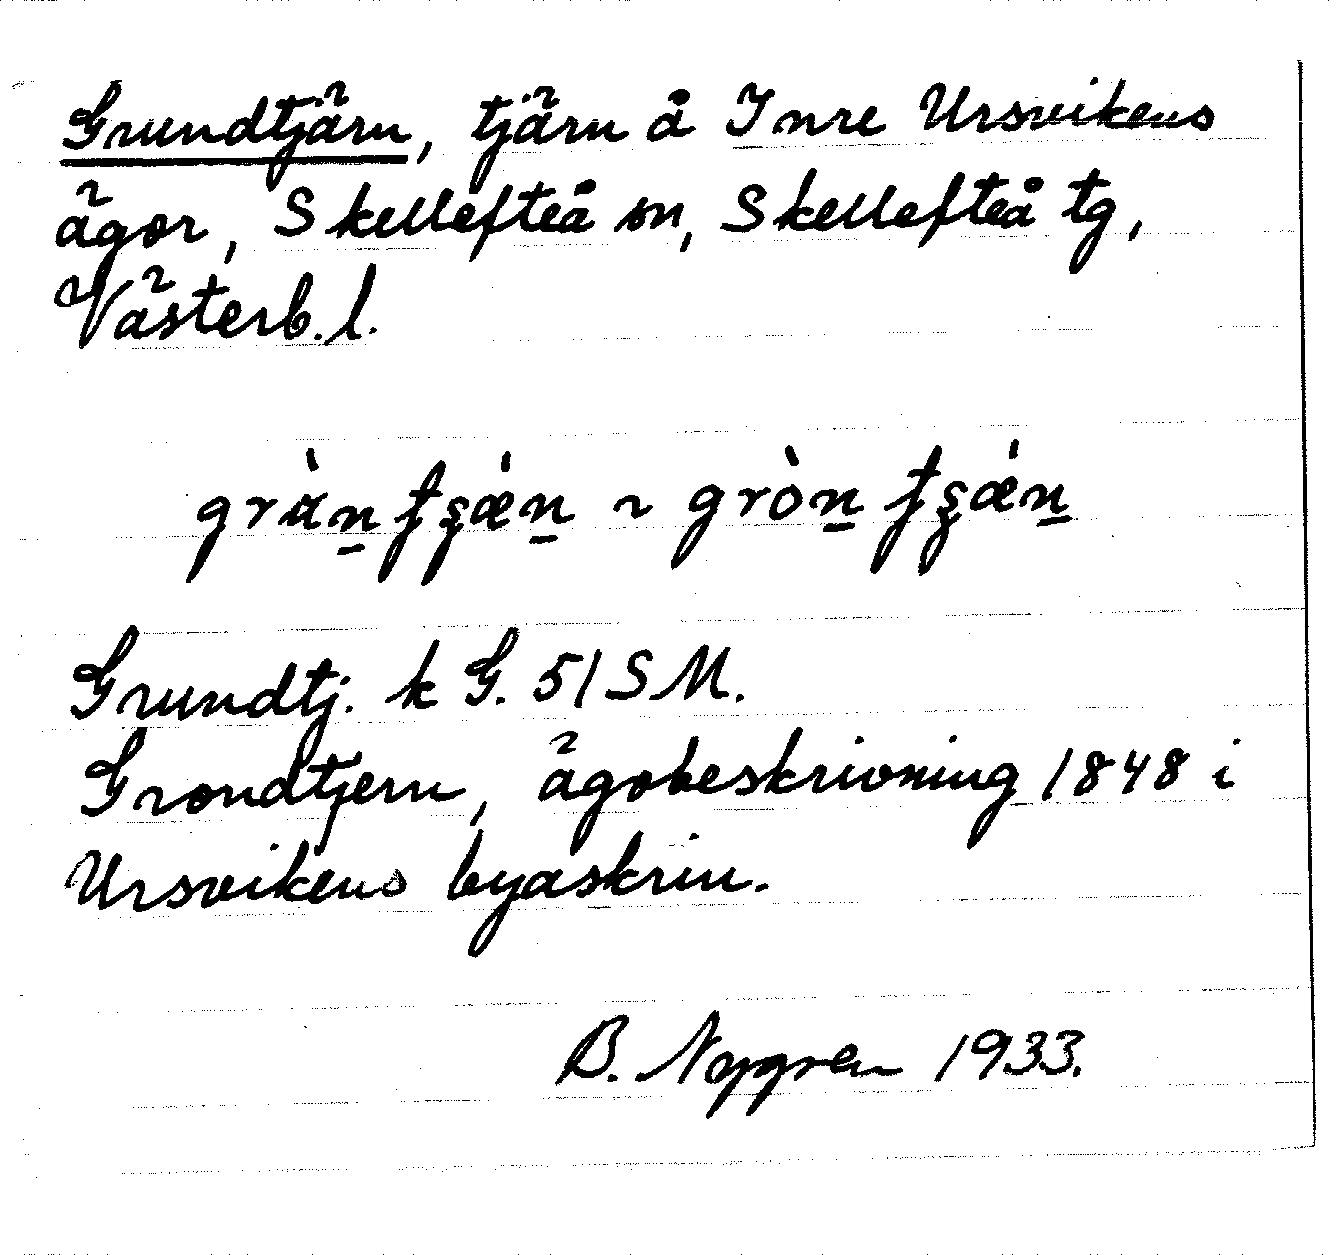 Grundtjärn, tjärn å Inre Ursvikens
ägor, Skellefteå sn, Skellefteå tg,
Västerb. l.
grὰn̲ʈʂǽn̲ ~ gròn̲ʈʂǽn̲
Grundtj. k G. 51 SM.
Grondtjern, ägobeskrivning 1848 i
Ursvikens byaskrin.
B. Nygren 1933.